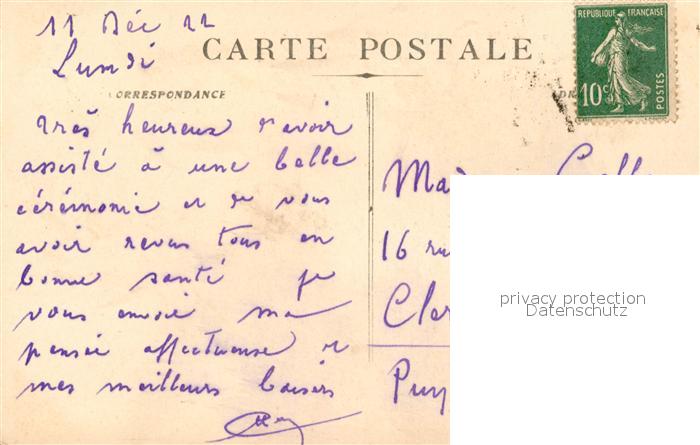 11 Déc 22
Lundi
CARTE POSTALE
RÉPUBLIQUE FRANÇAISE
10c
POSTES
CORRESPONDANCE
Très heureux d'avoir
assisté à une belle
cérémonie et de vous
avoir revus tous en
bonne santé je
vous envoie ma
pensée affectueuse et
mes meilleurs baisers
16 ru
Cler
Puy
privacy protection
Datenschutz